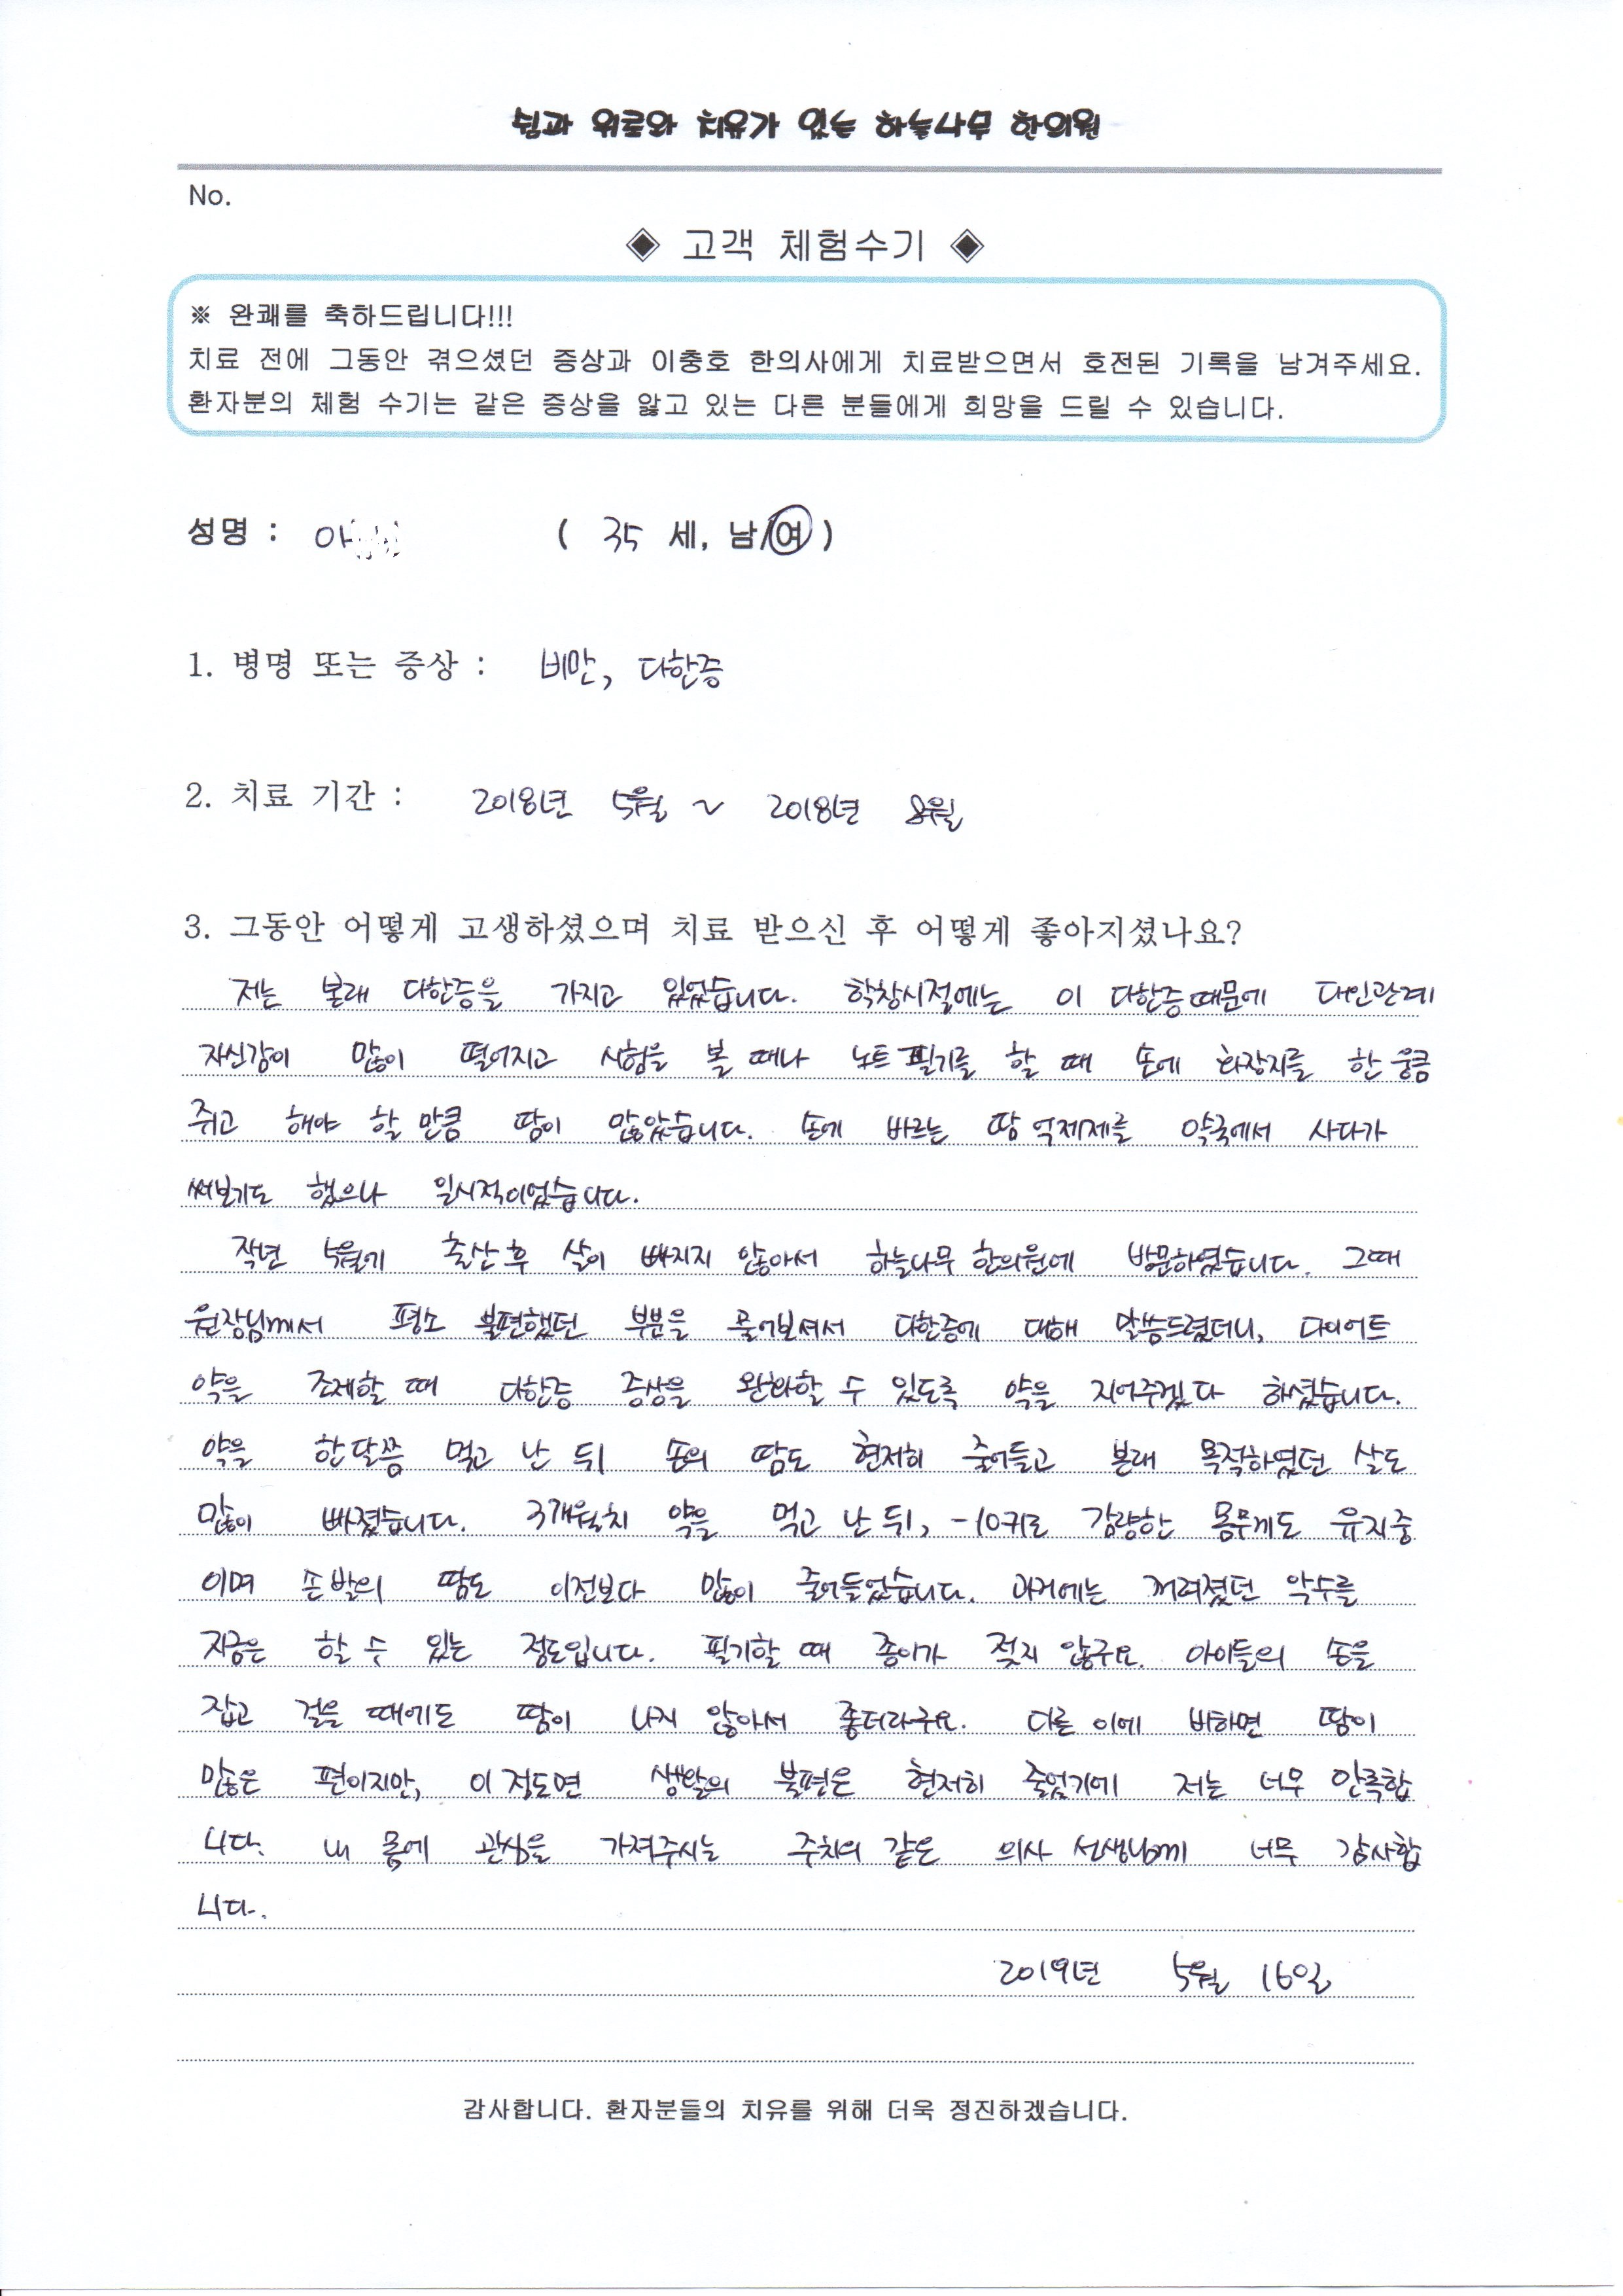 쉼과 위로와 치유가 있는 하늘나무 한의원
No.
◈ 고객 체험수기 ◈
※ 완쾌를 축하드립니다!!!
치료 전에 그동안 겪으셨던 증상과 이충호 한의사에게 치료받으면서 호전된 기록을 남겨주세요.
환자분의 체험 수기는 같은 증상을 앓고 있는 다른 분들에게 희망을 드릴 수 있습니다.
성명 : ( 35 세, 남/여 )
1. 병명 또는 증상 : 비만, 다한증
2. 치료 기간 : 2018년 5월 ~ 2018년 8월
3. 그동안 어떻게 고생하셨으며 치료 받으신 후 어떻게 좋아지셨나요?
저는 본래 다한증을 가지고 있었습니다. 학창시절에는 이 다한증때문에 대인관계
자신감이 많이 떨어지고 시험을 볼 때나 노트 필기를 할 때 손에 화장지를 한 웅큼
쥐고 해야 할 만큼 땀이 많았습니다. 손에 바르는 땀 억제제를 약국에서 사다가
써보기도 했으나 일시적이었습니다.
작년 5월기 출산 후 살이 빠지지 않아서 하늘나무 한의원에 방문하였습니다. 그때
원장님께서 평소 불편했던 부분을 물어보셔서 다한증에 대해 말씀드렸더니, 다이어트
약을 조제할 때 다한증 증상을 완화할 수 있도록 약을 지어주겠다 하셨습니다.
약을 한달쯤 먹고 난 뒤 손의 땀도 현저히 줄어들고 본래 목적하였던 살도
많이 빠졌습니다. 3개월치 약을 먹고 난 뒤, -10키로 감량한 몸무게도 유지중
이며 손발의 땀도 이전보다 많이 줄어들었습니다. 과거에는 꺼려졌던 악수를
지금은 할 수 있는 정도입니다. 필기할 때 종이가 젖지 않구요. 아이들의 손을
잡고 걸을 때에도 땀이 나지 않아서 좋더라구요. 다른 이에 비하면 땀이
많은 편이지만, 이 정도면 생활의 불편은 현저히 줄었기에 저는 너무 만족합
니다. 내 몸에 관심을 가져주시는 주치의 같은 의사 선생님께 너무 감사합
니다.
2019년 5월 16일
감사합니다. 환자분들의 치유를 위해 더욱 정진하겠습니다.